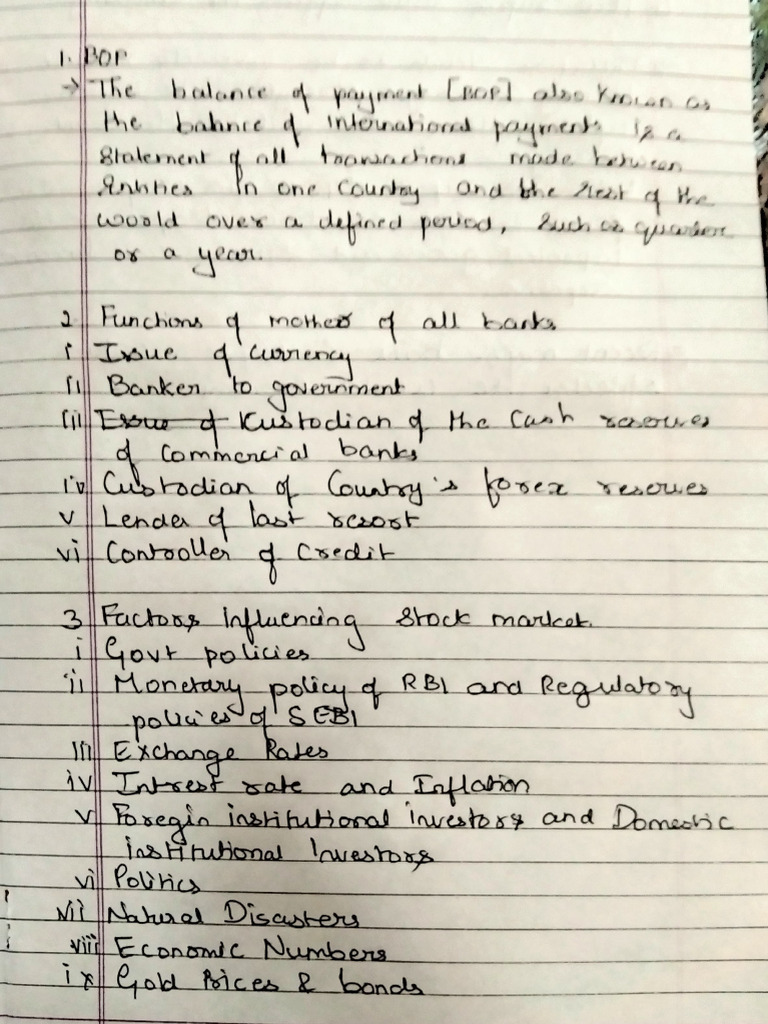 1. BOP
→ The balance of payment [BOP] also known as
the balnce of international payments is a
Statement of all transactions made between
Entities in one Country and the rest of the
world over a defined period, such as quarter
or a year.
2 Functions of mother of all banks
i Issue of currency
ii Banker to government
iii Essue of Kustodian of the Cash reserves
of Commercial banks
iv Custodian of Country's forex reserves
v Lender of last resort
vi Controller of Credit
3 Factors influencing Stock market.
i Govt policies
ii Monetary policy of RBI and Regulatory
policies of SEBI
iii Exchange Rates
iv Intrest rate and Inflation
v Foregin institutional investors and Domestic
institutional Investors
vi Politics
vii Natural Disasters
viii Economic Numbers
ix Gold Prices & bonds